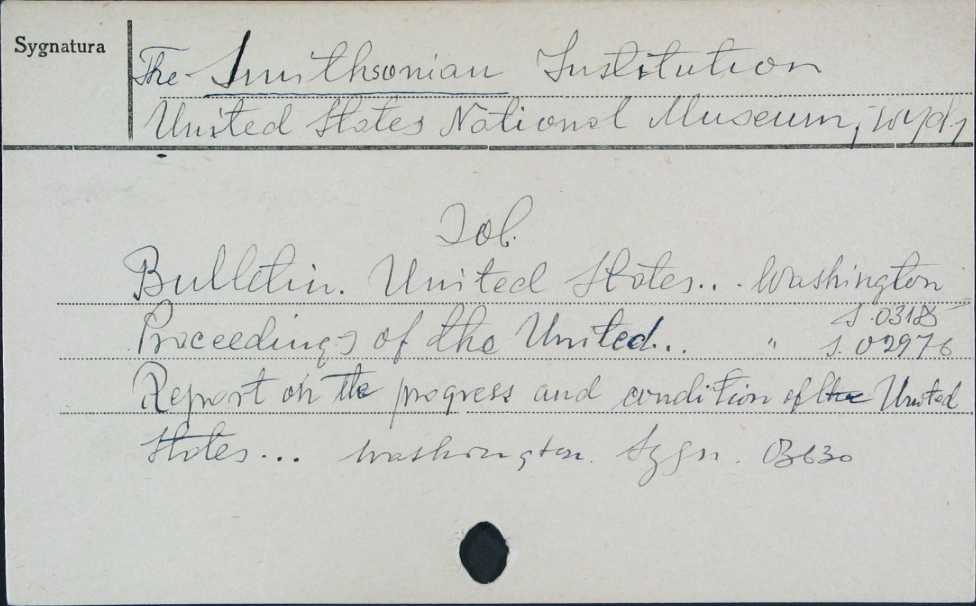 Sygnatura
The Smithsonian Institution
United States National Museum, wyd.
Zob.
Bulletin. United States... Washington
S. 03185
Proceedings of the United... " S. 02976
Report on the progress and condition of the United
States... Washington. Sygn. 03630